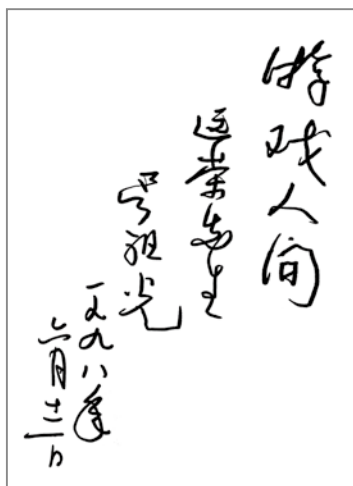 游戏人间
运荣先生
吴祖光
一九九八年
六月十二日